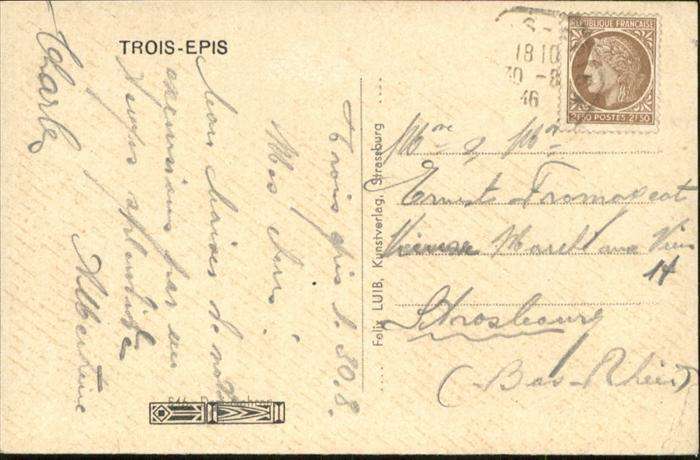 TROIS-EPIS
RÉPUBLIQUE FRANÇAISE
2F50 POSTES 2F50
18 10
30 - 8
46
Trois épis l. 30.8.
Mes chers
bons baisers de notre
excursion par un
temps splendide
Albertine
Charles
Felix LUIB, Kunstverlag, Strassburg
Mme & Mr
Ernest Fromageat
Vieux Marché aux Vins
14
Strasbourg
(Bas-Rhin)